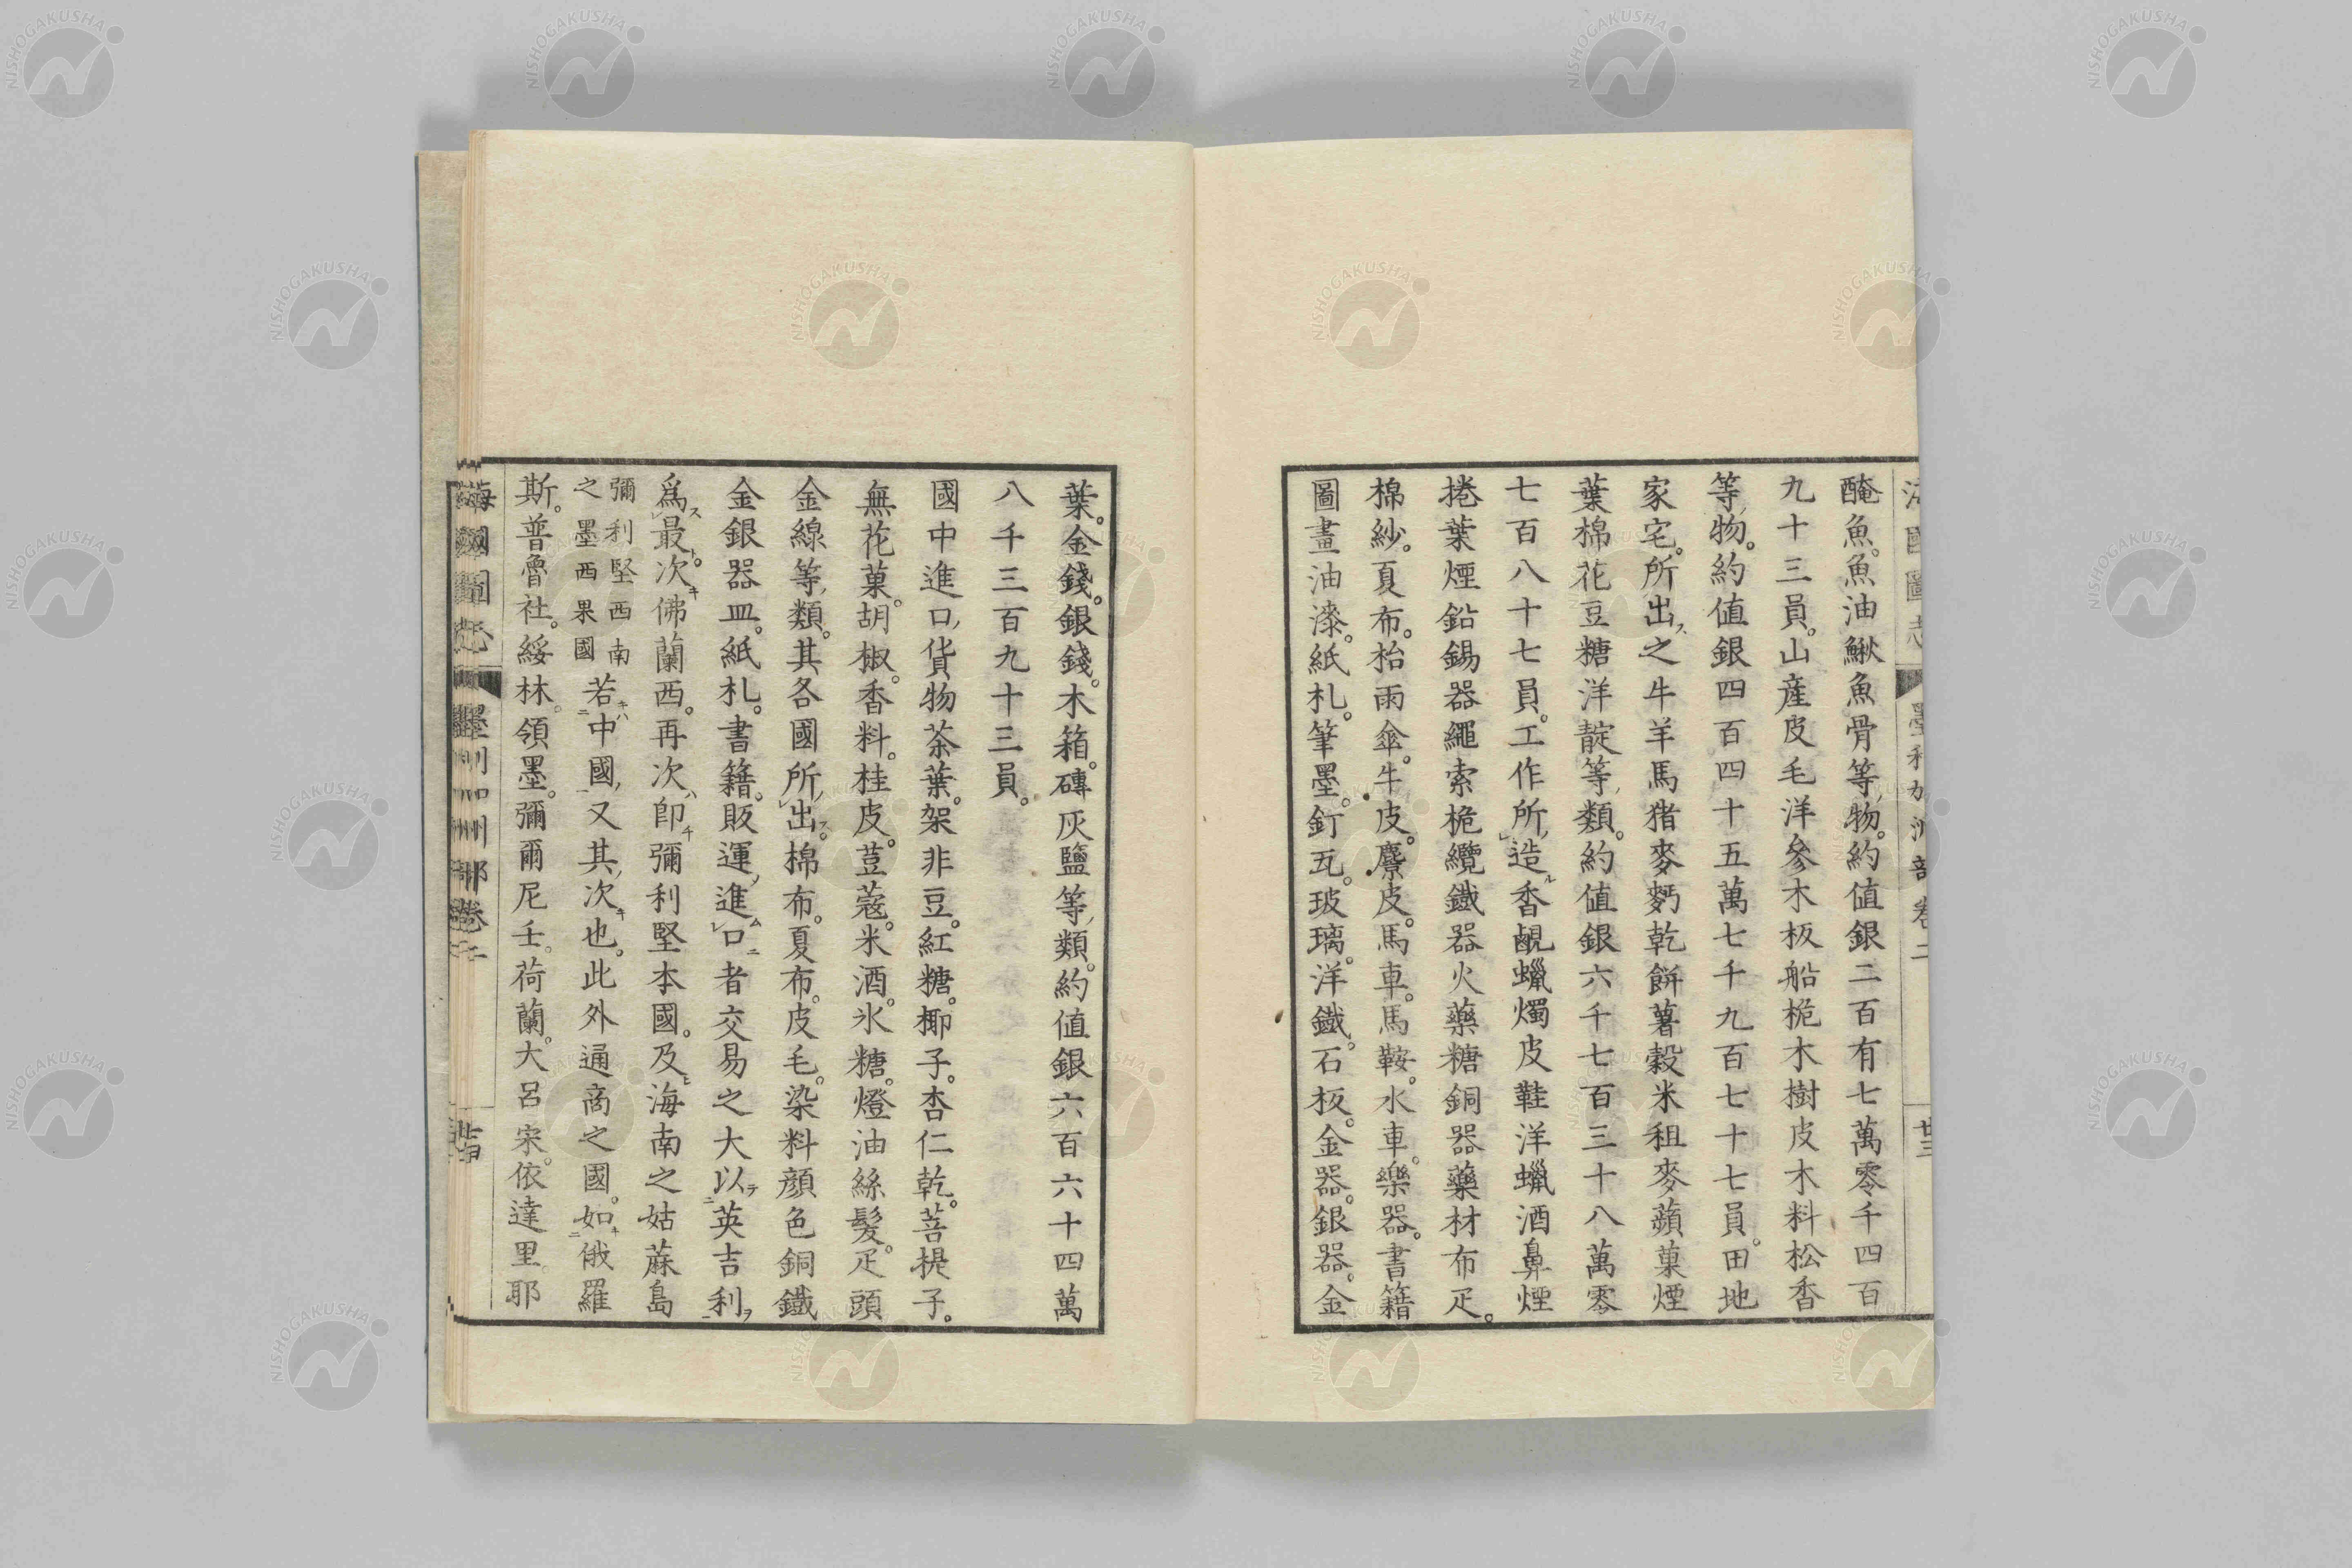 醃魚。魚油鰍魚骨等物。約值銀二百有七萬零千四百
九十三員。山產皮毛洋參木板船桅木樹皮木料松香
等物。約值銀四百四十五萬七千九百七十七員。田地
家宅。所出之牛羊馬猪麥麪乾餅薯榖米粗麥蘋菓煙
葉棉花豆糖洋靛等類。約值銀六千七百三十八萬零
七百八十七員。工作所造香鹼蠟燭皮鞋洋蠟酒鼻煙
捲葉煙鉛錫器繩索桅纜鐵器火藥糖銅器藥材布疋。
棉紗。夏布。枱雨傘。牛皮。麖皮。馬車。馬鞍。水車。樂器。書籍
圖畫油漆。紙札。筆墨。釘瓦。玻璃。洋鐵。石板。金器。銀器。金
葉。金錢。銀錢。木箱。磚灰鹽等類。約值銀六百六十四萬
八千三百九十三員。
國中進口貨物茶葉。架非豆。紅糖。椰子。杏仁乾。菩提子。
無花菓。胡椒。香料。桂皮。荳蔻。米酒。氷糖。燈油絲髮。疋頭
金線等類。其各國所出。棉布。夏布。皮毛。染料顏色銅鐵
金銀器皿。紙札。書籍。販運進口者交易之大以英吉利
爲最。次佛蘭西。再次卽彌利堅本國。及海南之姑蔴島
彌利堅西南之墨西果國若中國又其次也。此外通商之國。如俄羅
斯。普魯社。綏林。領墨。彌爾尼壬。荷蘭。大呂宋。依達里。耶
海國圖志 墨利加洲部卷二 廿三
NISHOGAKUSHA